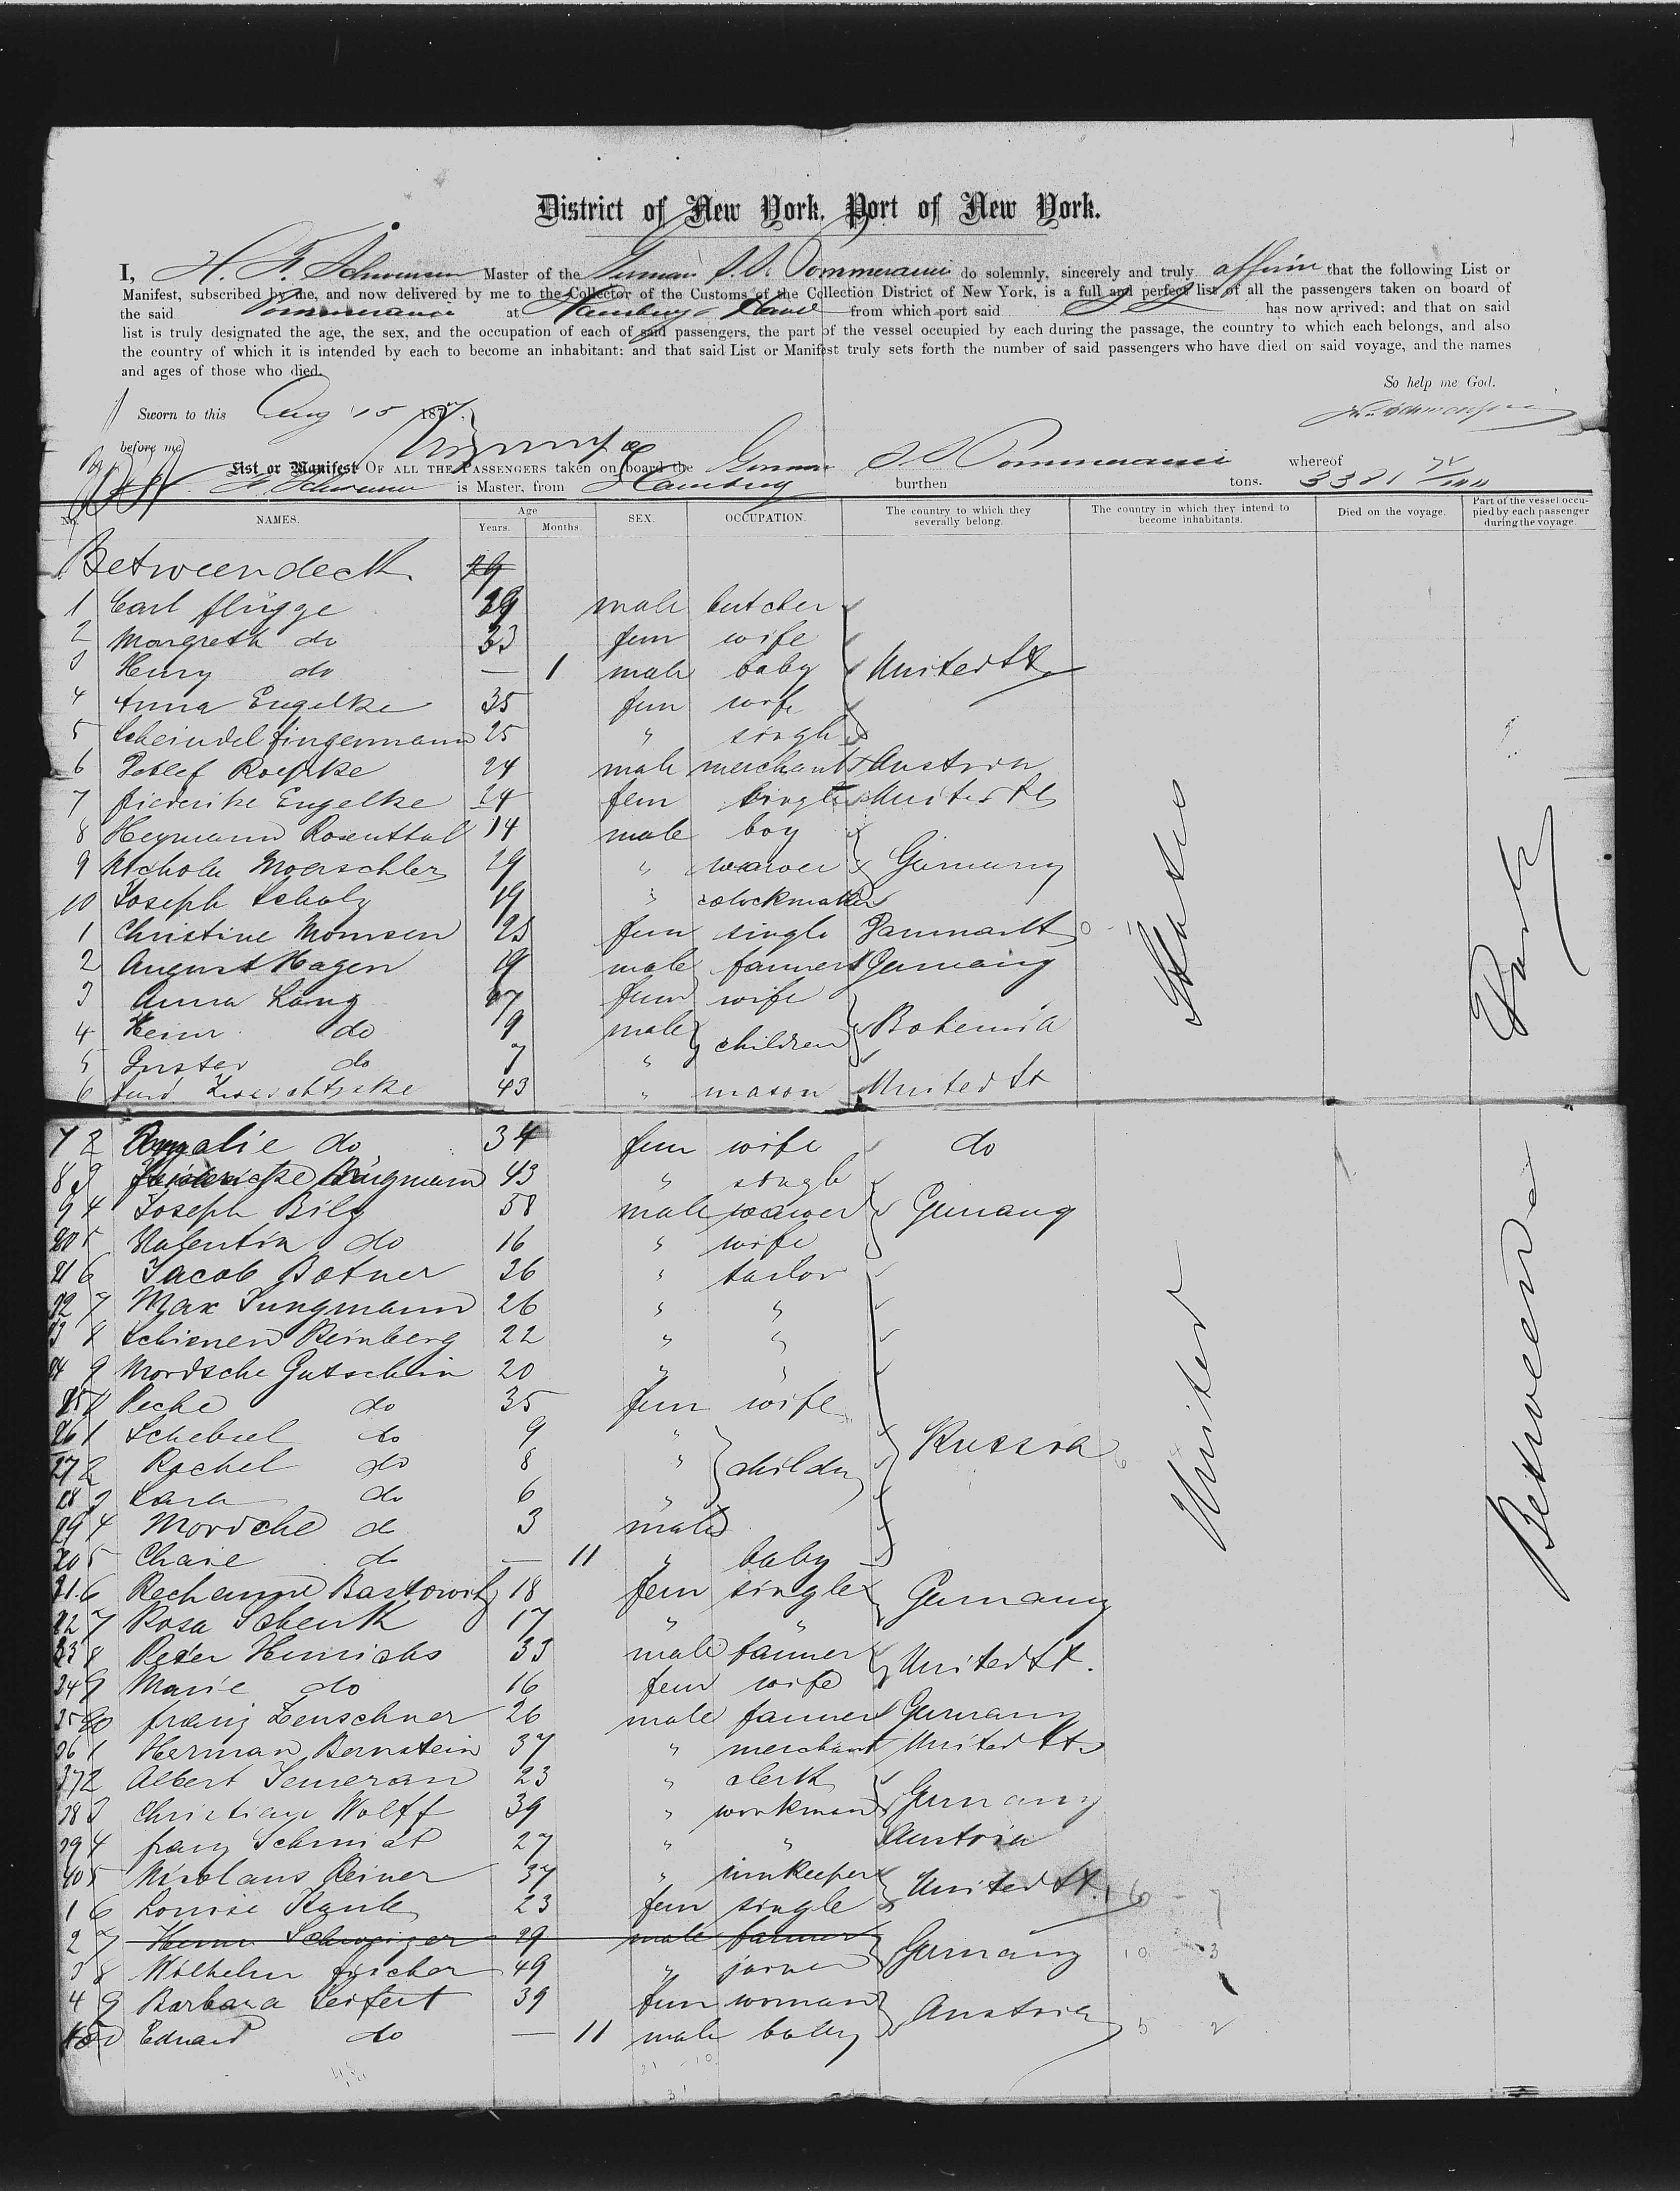 District of New York, Port of New York.
I, H. F. Schwensen Master of the German S.S. Pommerania do solemnly, sincerely and truly affirm that the following List or
Manifest, subscribed by me, and now delivered by me to the Collector of the Customs of the Collection District of New York, is a full and perfect list of all the passengers taken on board of
the said Pommerania at Hamburg & Havre from which port said has now arrived; and that on said
list is truly designated the age, the sex, and the occupation of each of said passengers, the part of the vessel occupied by each during the passage, the country to which each belongs, and also
the country of which it is intended by each to become an inhabitant: and that said List or Manifest truly sets forth the number of said passengers who have died on said voyage, and the names
and ages of those who died.
So help me God.
Sworn to this Aug 15 1877
before me
List or Manifest OF ALL THE PASSENGERS taken on board the German S S Pommerania whereof
F. Schwensen is Master, from Hamburg burthen tons. 3381
No. NAMES. Age Years. Months. SEX. OCCUPATION. The country to which they severally belong. The country in which they intend to become inhabitants. Died on the voyage. Part of the vessel occupied by each passenger during the voyage.
Betweendeck
1 Carl flügge 39 male butcher
2 Margreth do 33 fem wife
3 Henry do — 1 male baby United St
4 Anna Engelke 35 fem wife
5 Scheindel fingermann 25 " single
6 Detlef Roepke 24 male merchant Austria
7 friederike Engelke 24 fem single United St
8 Heymann Rosenthal 14 male boy
9 Nicholas Moerschler 29 " weaver Germany
10 Joseph Scholz 19 " clockmaker
1 Christine Momsen 25 fem single Danmark
2 August Hagen 19 male farmer Germany
3 Anna Lang 47 fem wife
4 Heinr do 9 male children Bohemia
5 Gustav do 7 "
6 ferd 43 " mason United St
7 2 Amalie do 34 fem wife do
8 3 Brügmann 43 " single
9 4 Joseph Bilz 58 male weaver Germany
20 5 Valentin do 16 " wife
21 6 Jacob Botner 26 " tailor
22 7 Max Jungmann 26 " "
23 8 Schienen Reinberg 22 " "
24 9 Mordsche Gutschein 20 " "
25 Peche do 35 fem wife
26 1 Schebsel do 9 " Russia
27 2 Rachel do 8 " children
28 3 Sara do 6 "
29 4 Mordche do 3 male
30 5 Chaie do — 11 " baby
31 6 Rechanne Bartowitz 18 fem single Germany
32 7 Rosa Schenk 17 " "
33 8 Peter Hinrichs 33 male farmer United St.
34 9 Marie do 16 fem wife
35 franz Zenschner 26 male farmer Germany
36 1 Herman Bernstein 37 " merchant United St
37 2 Albert Temeran 23 " clerk
38 3 Christian Wolff 39 " workman Germany
39 4 franz Schmidt 27 " " Austria
40 5 Nicolaus Reiner 37 " innkeeper United St.
1 6 Louise Rank 23 fem single
2 7 Heinr Schweizer 29 male farmer
3 8 Wilhelm fischer 49 " joiner Germany
4 9 Barbara Seifert 39 fem woman Austria
45 Eduard do — 11 male baby
United States
Betweend Deck